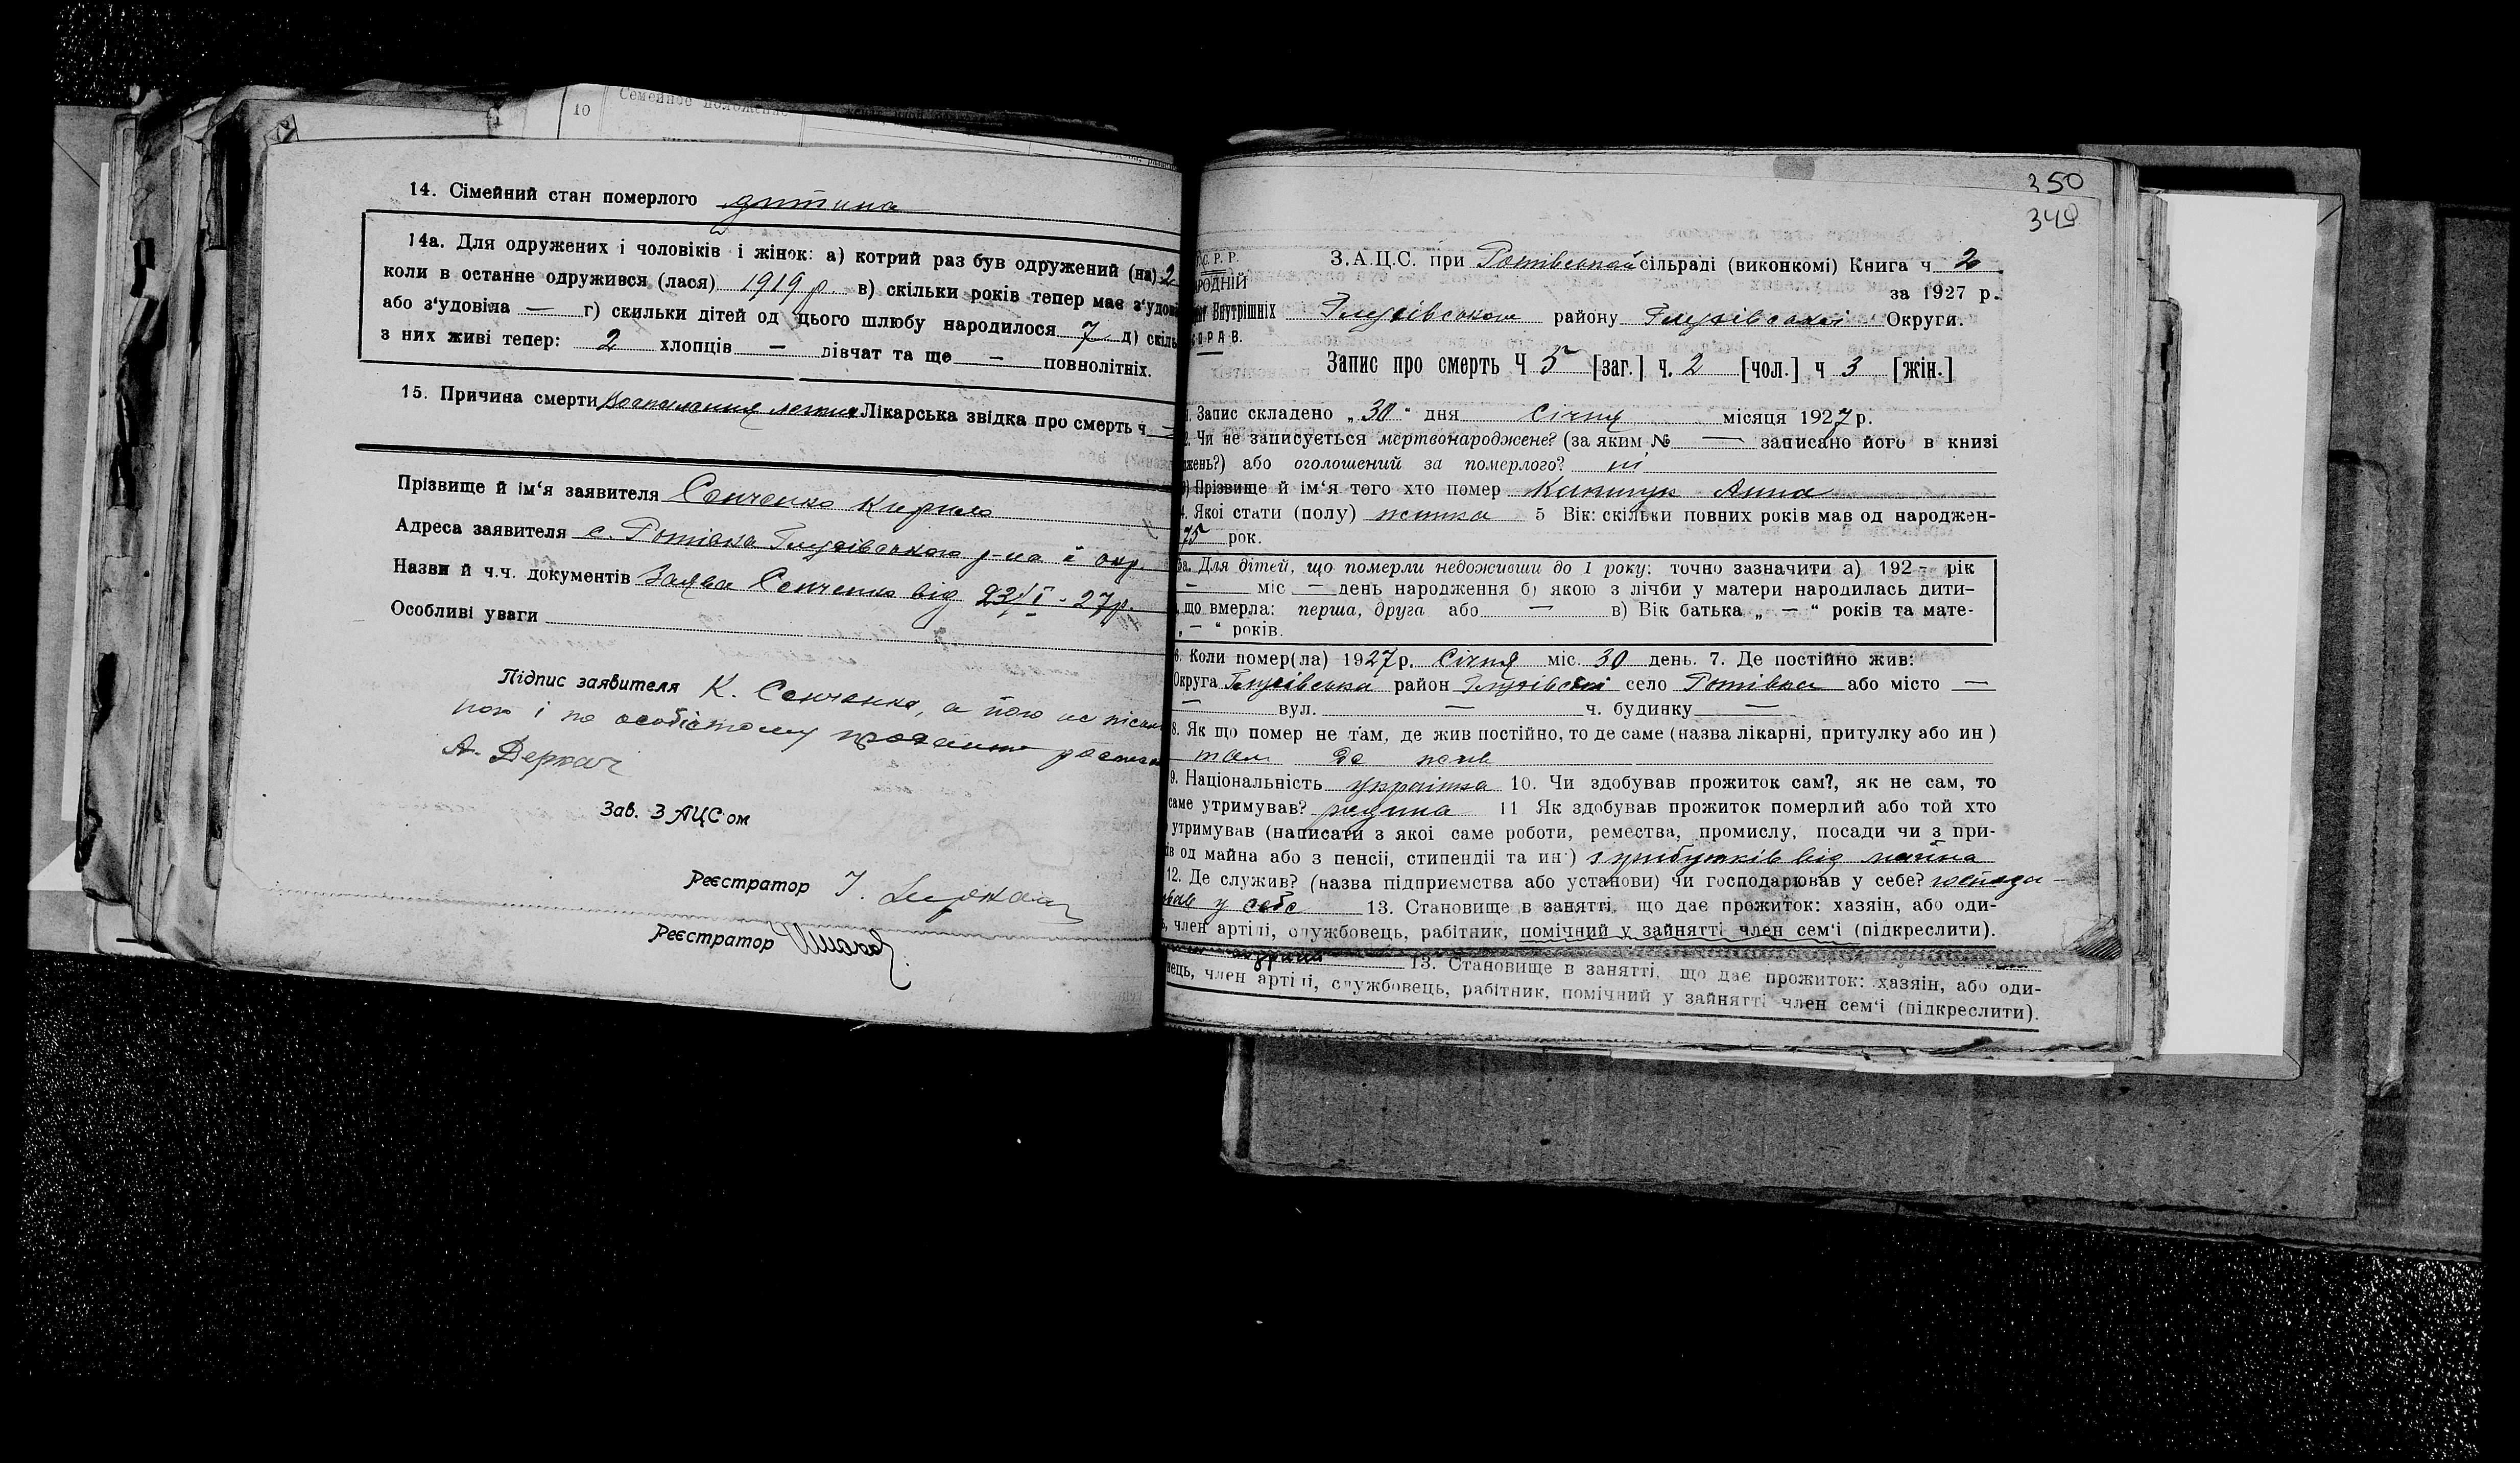 10 Семейное положение
14. Сімейний стан померлого дитина
14а. Для одружених і чоловіків і жінок: а) котрий раз був одружений (на) 2
коли в останне одружився (лася) 1919 р в) скільки років тепер має з'удові
або з'удовіла — г) скильки дітей од цього шлюбу народилося 7 д) скіль
з них живі тепер: 2 хлопців — дівчат та ще — повнолітніх.
15. Причина смерти Воспалания легких Лікарська звідка про смерть ч —
Прізвище й ім'я заявителя Сенченко Кирило
Адреса заявителя с. Ротівка Глухівського р-на й окр.
Назви й ч.ч. документів Заява Сенченка від 23/I - 27 р.
Особливі уваги
Підпис заявителя К. Сенченко, а його не пісьм
ного і по особістому проханию распис
А. Деркач
Зав. З АЦС ом
Реєстратор І. Деркач
Реєстратор
350
349
С. Р. Р.
РОДНІЙ
Внутрішніх
СПРАВ.
З.А.Ц.С. при Ротівській сільраді (виконкомі) Книга ч 2
за 1927 р.
Глухівського району Глухівської Округи.
Запис про смерть Ч 5 [заг.] ч. 2 [чол.] ч 3 [жін.]
1. Запис складено „30" дня Січня місяця 1927 р.
2. Чи не записується мертвонароджене? (за яким № — записано його в книзі
жень?) або оголошений за померлого? ні
3) Прізвище й ім'я того хто помер Анна
4. Якої стати (полу) жинка 5 Вік: скільки повних років мав од народжен-
75 рок.
5а. Для дітей, що померли недоживши до 1 року: точно зазначити а) 192 - рік
— міс — день народження б) якою з лічби у матери народилась дити-
, що вмерла: перша, друга або — в) Вік батька „ — “ років та мате-
„ — “ років.
6. Коли помер(ла) 1927 р. Січня міс. 30 день. 7. Де постійно жив:
Округа Глухівська район Глухівский село Ротівка або місто —
— вул. — ч. будинку —
8. Як що помер не там, де жив постійно, то де саме (назва лікарні, притулку або ин)
там де жив
9. Національність українка 10. Чи здобував прожиток сам?, як не сам, то
саме утримував? родина 11 Як здобував прожиток померлий або той хто
утримував (написати з якоі саме роботи, ремества, промислу, посади чи з при-
ів од майна або з пенсіи, стипендіи та ин) з прибутків від майна
12. Де служив? (назва підприємства або установи) чи господарював у себе? господа-
рював у себе 13. Становище в занятті, що дає прожиток: хазяін, або оди-
, член артілі, служbовець, рабітник, помічний у зайнятті член сем'і (підкреслити).
13. Становище в занятті, що дає прожиток: хазяін, або оди-
нець, член артілі, службовець, рабітник, помічний у зайнятті член сем'і (підкреслити).